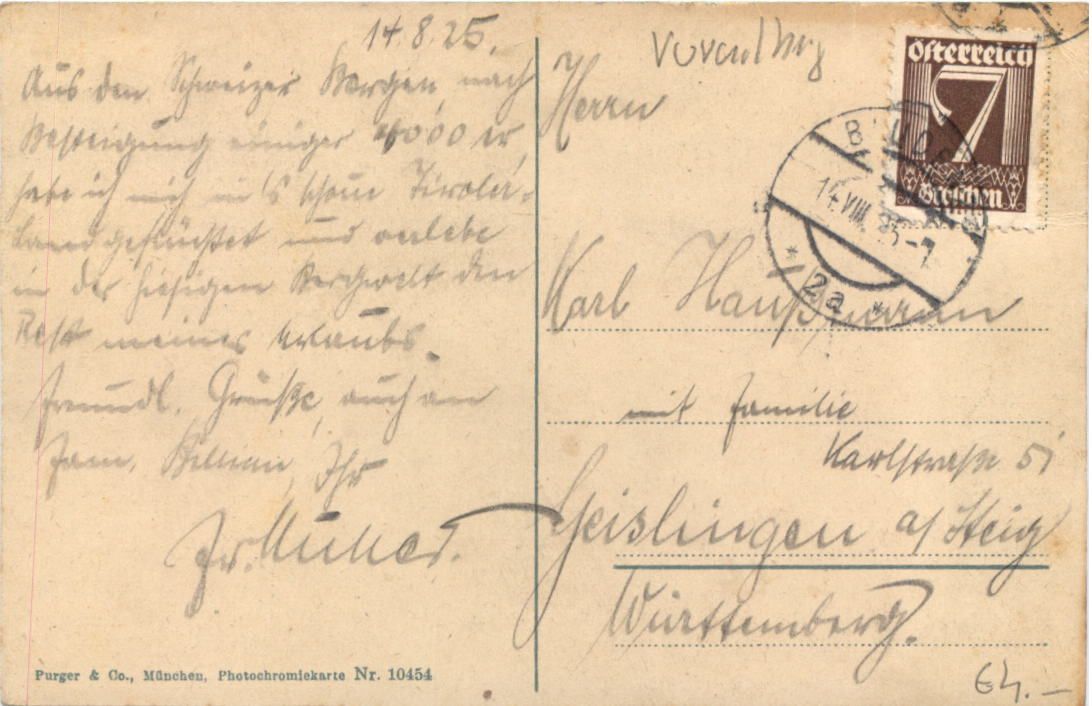 14.8.25.
Aus den Schweizer Bergen, nach
Besteigung einiger 4000 er,
habe ich mich in's schöne Tiroler-
land geflüchtet und verlebe
in der hiesigen Bergwelt den
Rest meines Urlaubs.
Freundl. Grüße, auch an
Fam. Ihr
Fr.
Vorarlbg
Herrn
Karl Haußmann
mit Familie
Karlstraße 51
Geislingen a/Steig
Württemberg.
Österreich
7
Groschen
BLUDENZ
14.VIII.25-7
* 2a *
Purger & Co., München, Photochromiekarte Nr. 10454
64.—